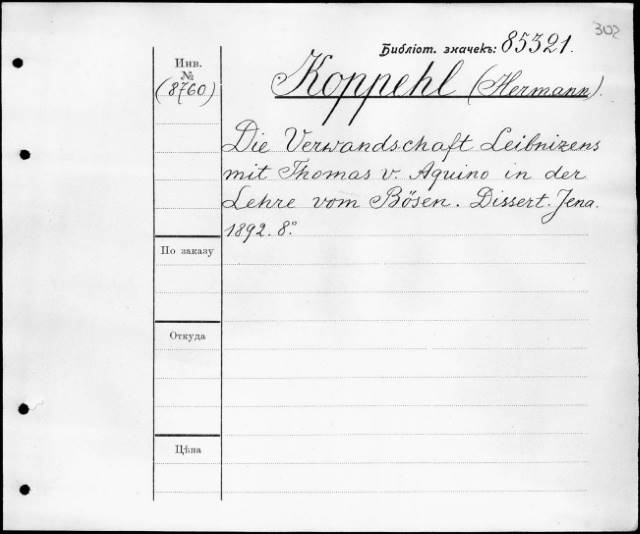 302
Библіот. значекъ: 85321.
Инв.
№
(8760)
Koppehl (Hermann).
Die Verwandschaft Leibnizens
mit Thomas v. Aquino in der
Lehre vom Bösen. Dissert. Jena.
1892. 8.°
По заказу
Откуда
Цѣна